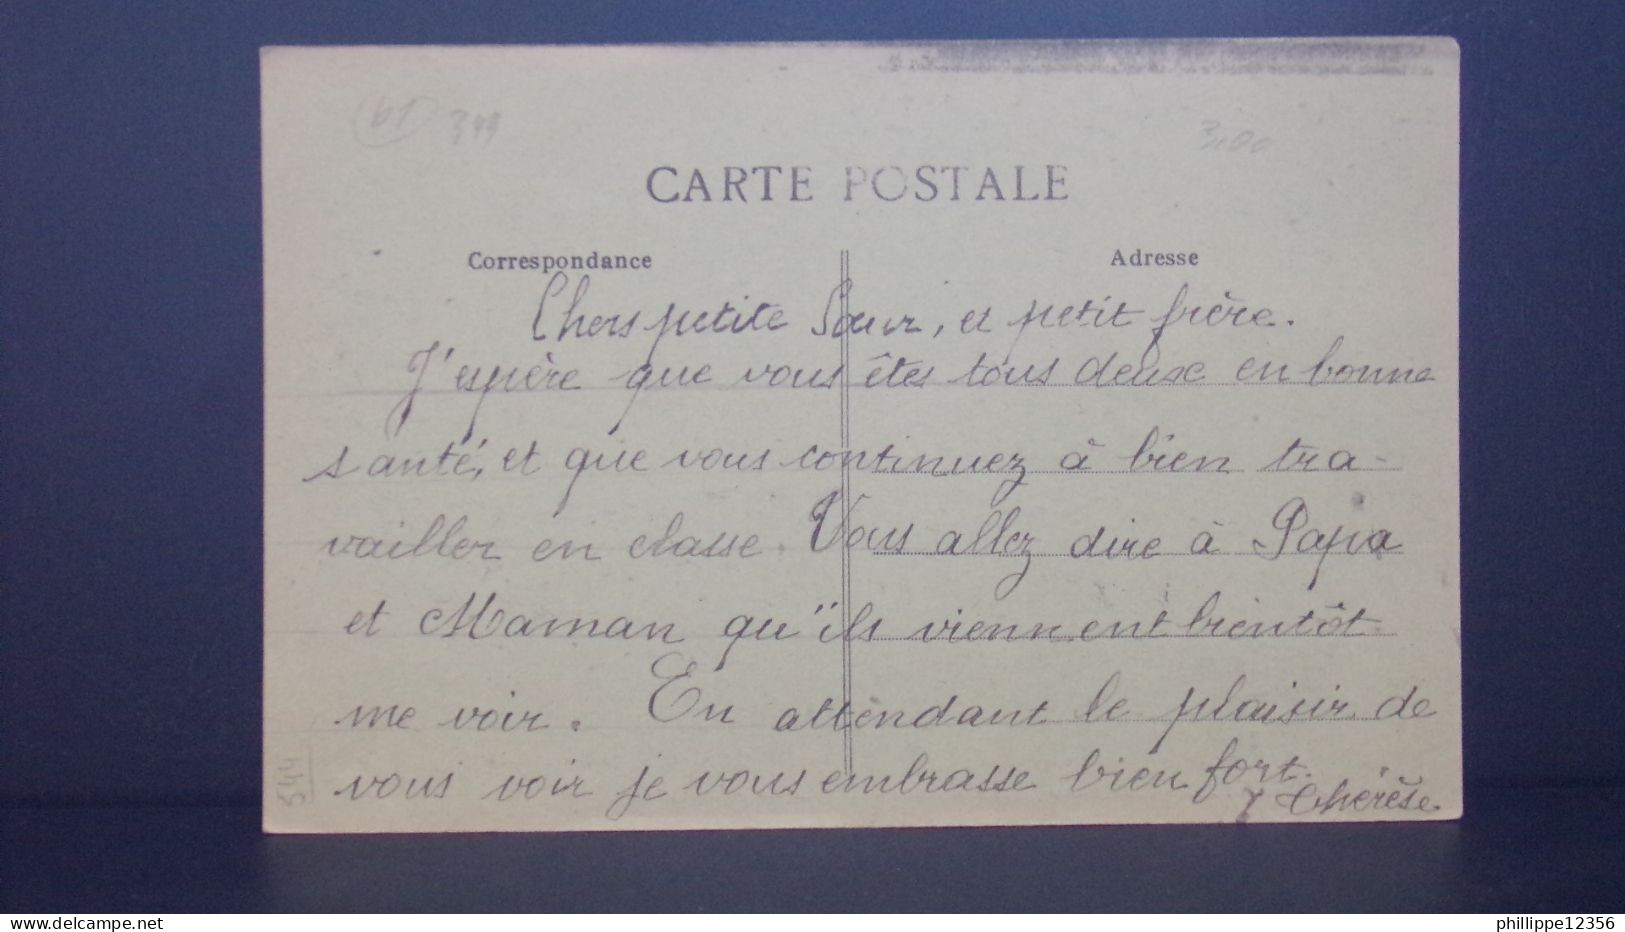 61 349
3,00
CARTE POSTALE
Correspondance
Adresse
Chers petite Sœur, et petit frère.
J'espère que vous êtes tous deux en bonne
santé, et que vous continuez à bien tra-
vailler en classe. Vous allez dire à Papa
et Maman qu'ils viennent bientôt
me voir. En attendant le plaisir de
vous voir je vous embrasse bien fort.
Thérèse.
544
delcampe.net
philippe12356